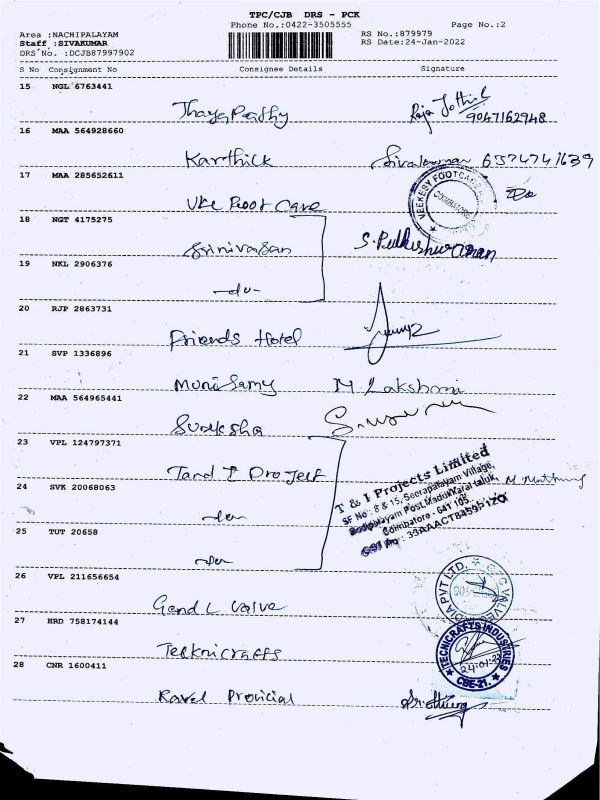 TPC/CJB DRS - PCK
Phone No.:0422-3505555 Page No.:2
Area :NACHIPALAYAM RS No.:879979
Staff :SIVAKUMAR RS Date:24-Jan-2022
DRS No. :DCJB87997902
S No Consignment No Consignee Details Signature
15 NGL 6763441
9047162948
16 MAA 564928660
Karthick 6374741639
17 MAA 285652611
VKC Foot Care
VEEKESY FOOTCARE
18 NGT 4175275
Srinivasan
19 NKL 2906376
-do-
20 RJP 2863731
Friends Hotel
21 SVP 1336896
Munisamy M Lakshmi
22 MAA 564965441
Sureksha
23 VPL 124797371
T and I Project
T & I Projects Limited
SF No : 8 & 15, Seerapalayam Village,
Seerapalayam Post, Madukkarai taluk,
Coimbatore - 641 105.
24 SVK 20068063
-do-
25 TUT 20658
-do-
26 VPL 211656654
G and C Valve
27 HRD 758174144
Tecknicrafts
TECNICRAFTS INDUSTRIES
CBE-21.
28 CNR 1600411
Ravel Provicial